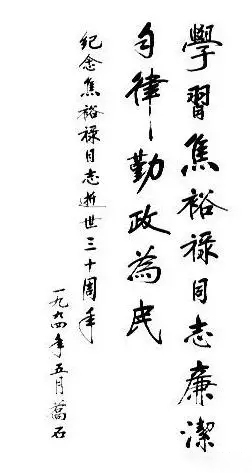 學習焦裕禄同志廉潔
自律勤政為民
纪念焦裕禄同志逝世三十周年
一九九四年五月喬石